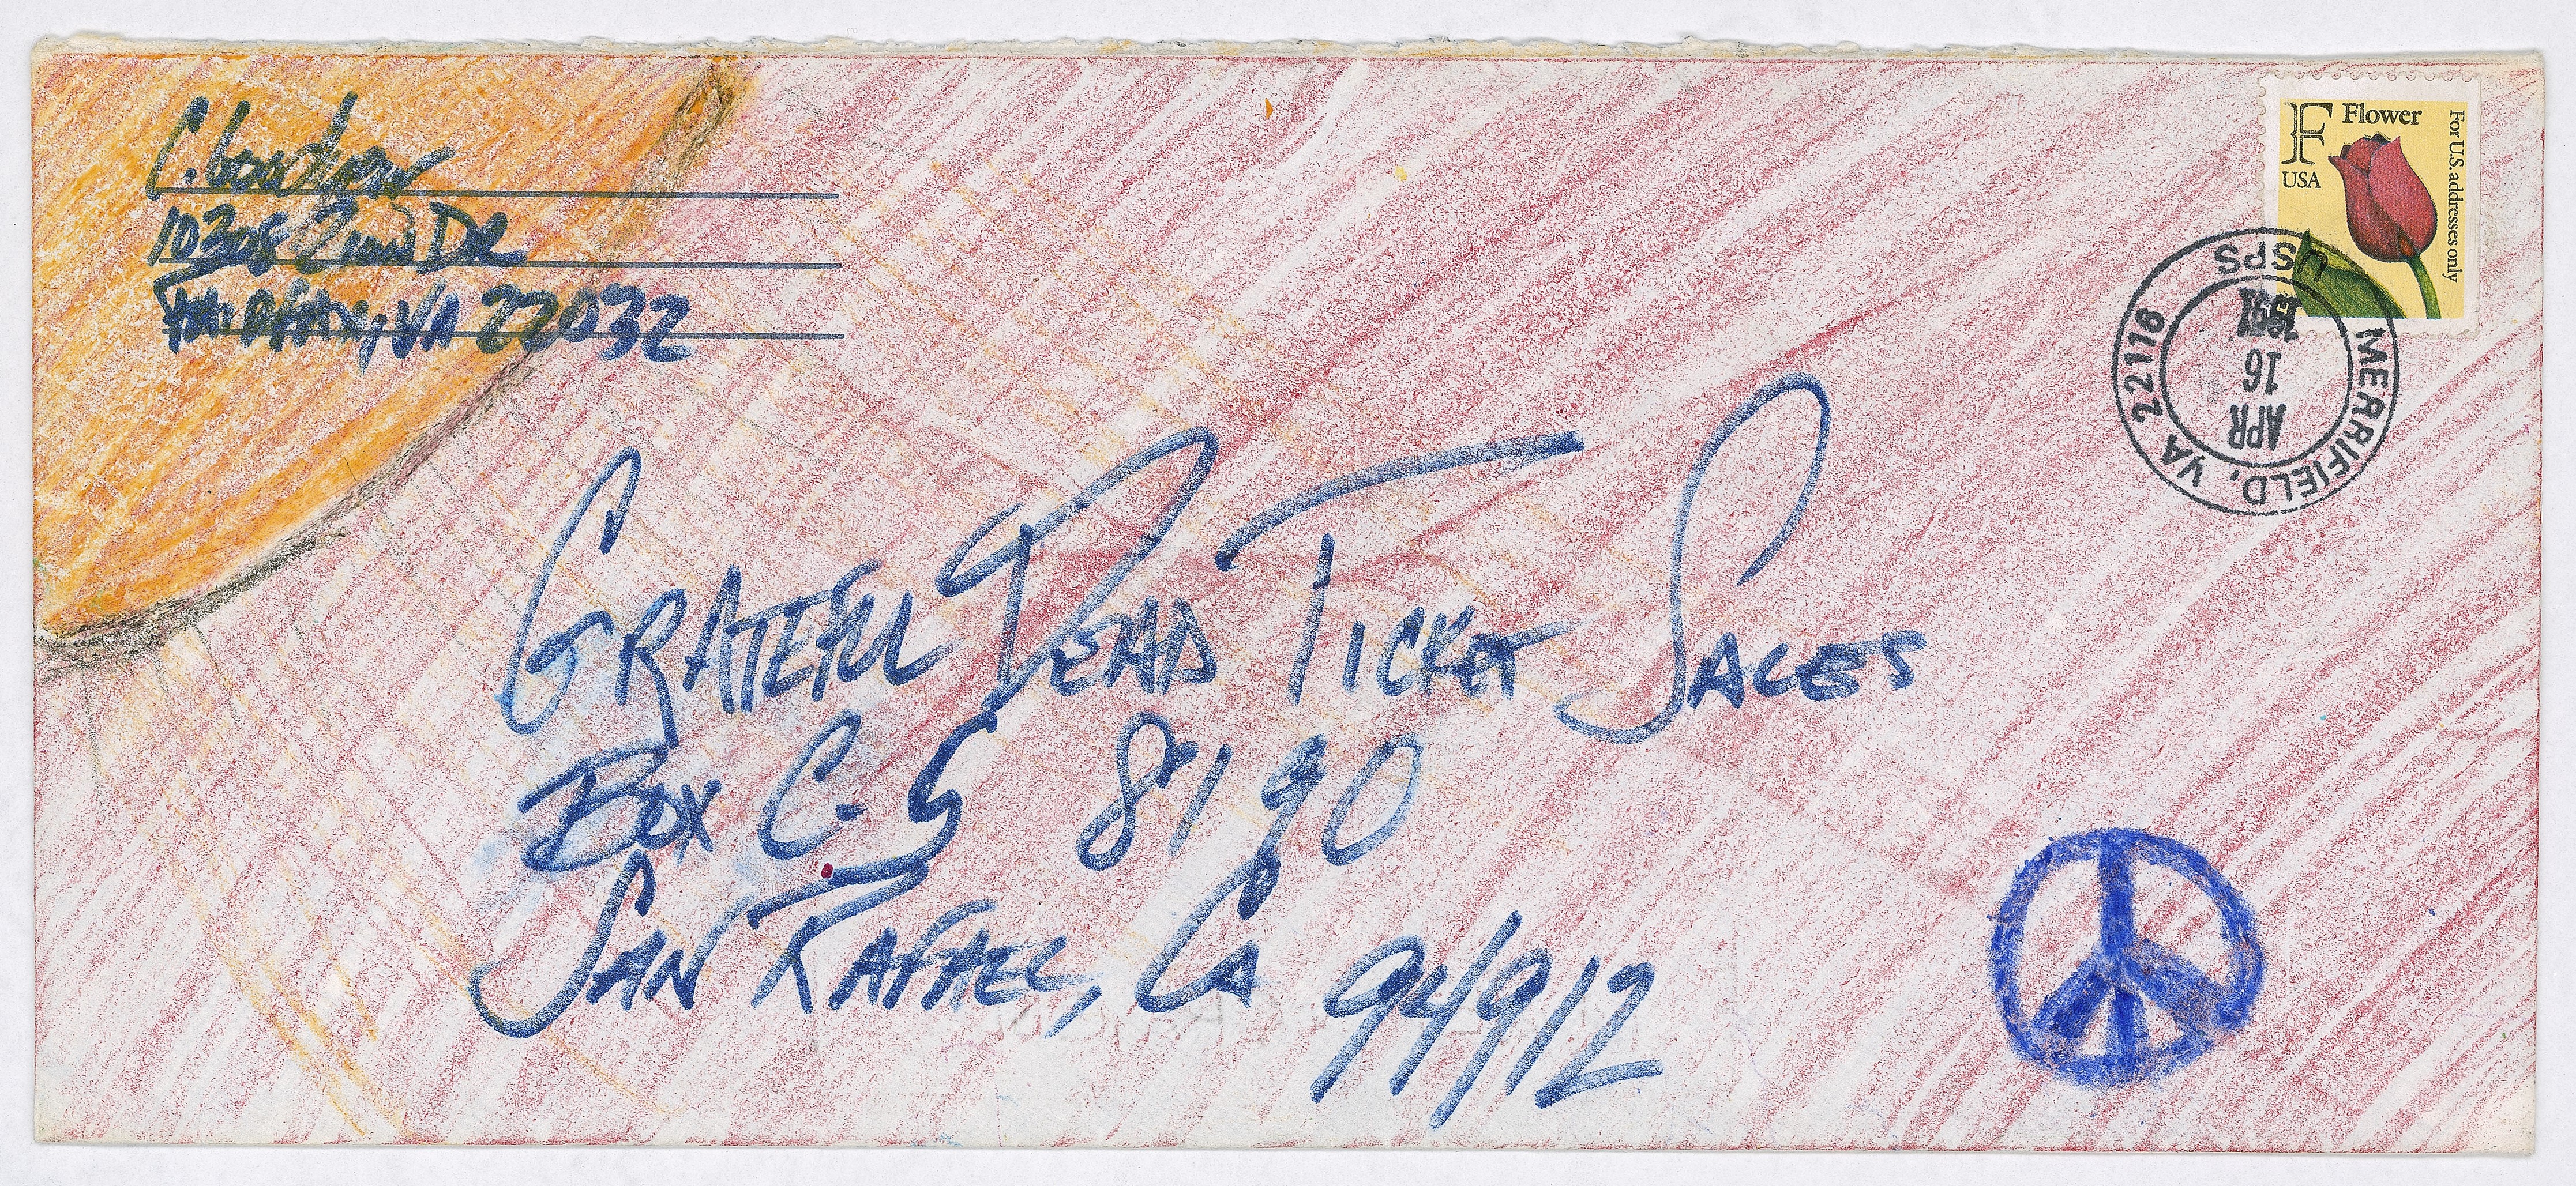 10308 Zion DR
Fairfax, VA 22032
F Flower
USA
For U.S. addresses only
MERRIFIELD, VA 22116
USPS
APR
16
1991
GRATEFUL DEAD TICKET SALES
Box C.S 8190
SAN RAFAEL, CA 94912